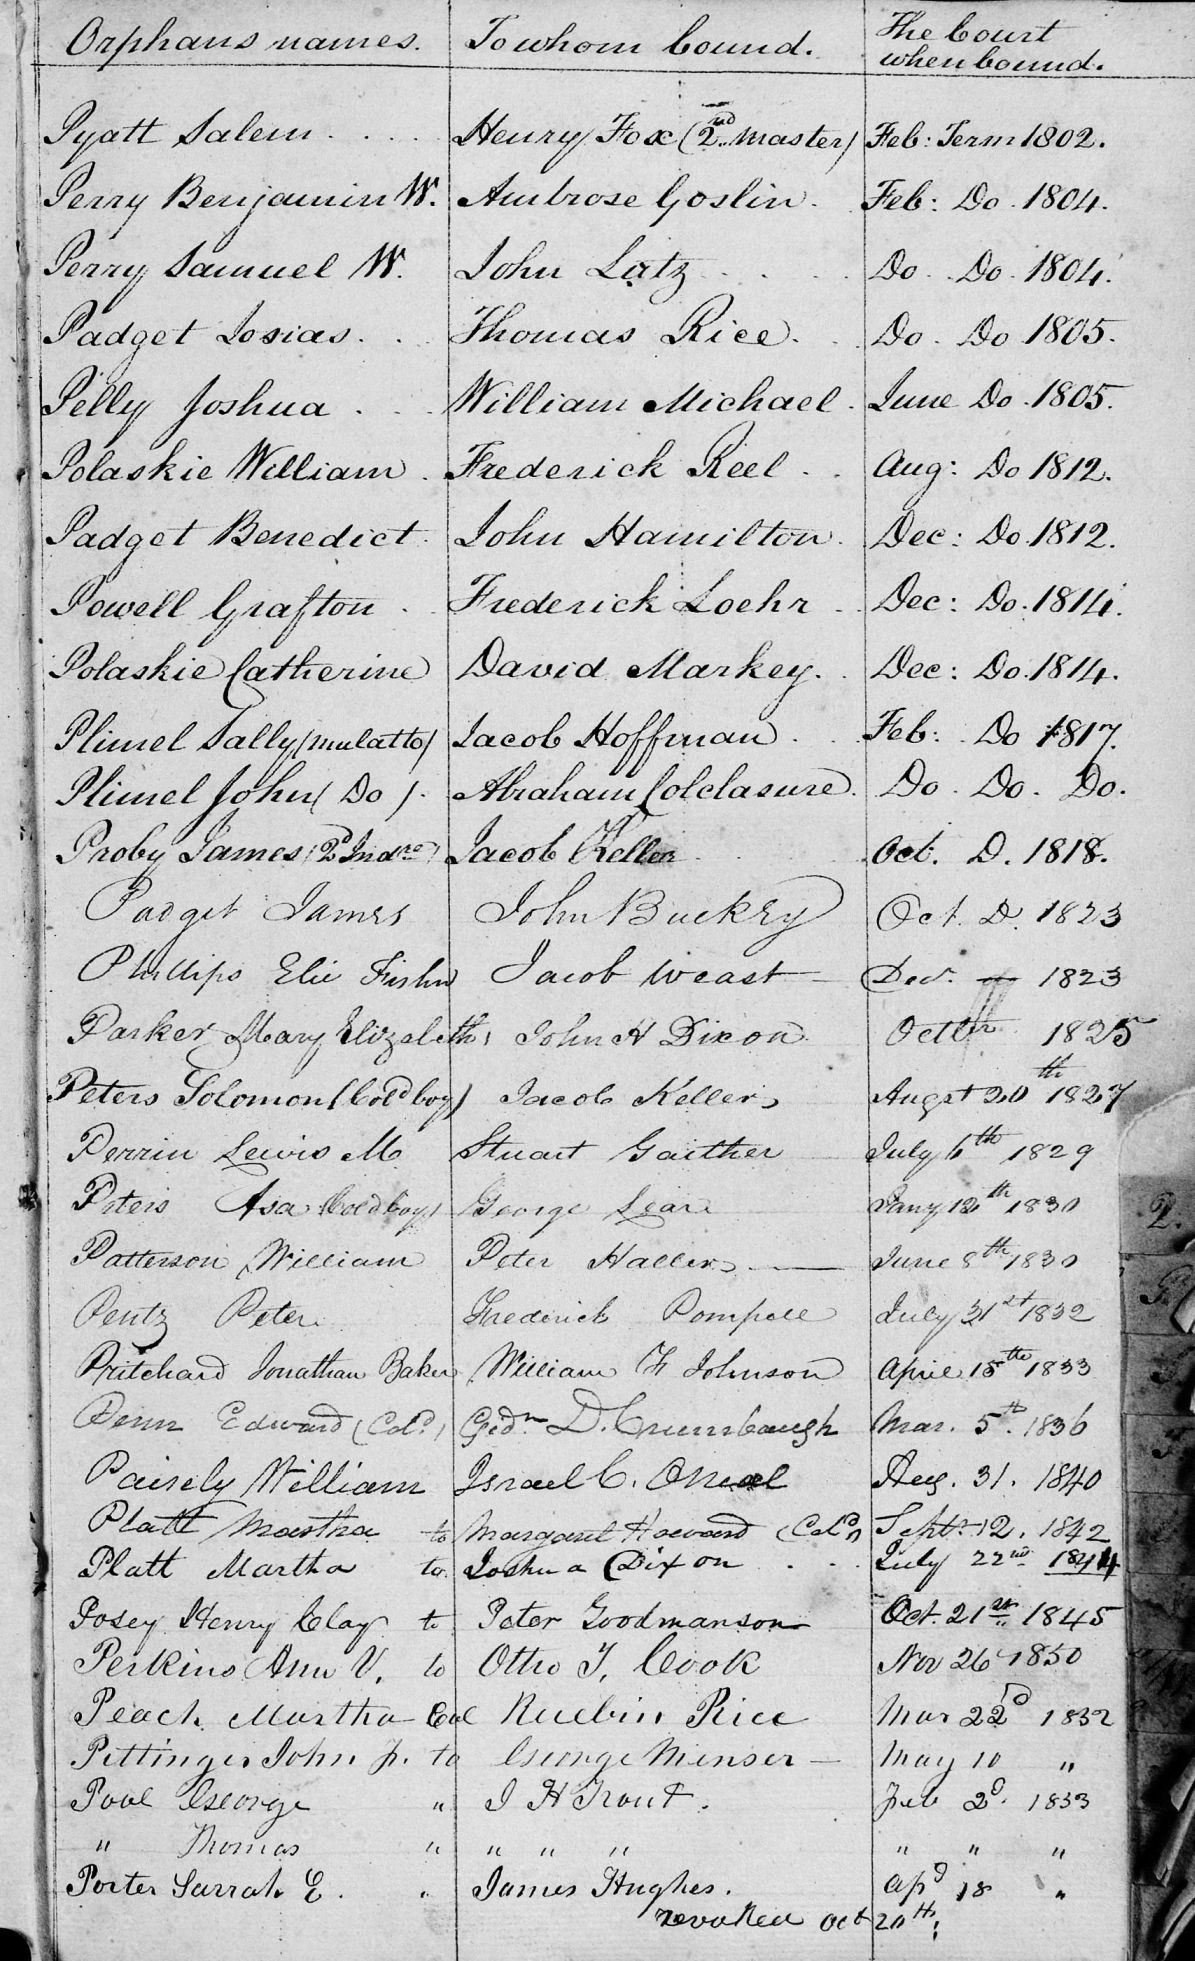 Orphans names. To whom bound. The Court when bound.
Pyatt Salem . . . . Henry Fox (2nd Master) Feb: Term 1802.
Perry Benjamin W. Ambrose Goslin . Feb: Do . 1804.
Perry Samuel W. John Latz . . . . Do . Do . 1804.
Padget Josias . . . Thomas Rice . . . Do . Do 1805.
Pelly Joshua . . . William Michael . June Do . 1805.
Polaskie William . Frederick Reel . . Aug: Do 1812.
Padget Benedict . John Hamilton . Dec: Do . 1812.
Powell Grafton . . Frederick Loehr . Dec: Do . 1814.
Polaskie Catherine David Markey . . Dec: Do . 1814.
Plimel Sally (mulatto) Jacob Hoffman . . Feb: Do 1817.
Plimel John ( Do ) . Abraham Colclasure . Do . Do . Do.
Proby James (2d Indre) Jacob Keller . . . Oct. D. 1818.
Padget James John Buckey Oct. D. 1823
Phillips Elie Fisher Jacob Weast — Decr. 1823
Parker Mary Elizabeth, John H Dixon Octbr 1825
Peters Solomon (Cold boy) Jacob Keller Augst 20th 1827
Perrin Lewis M Stuart Gaither July 6th 1829
Peters Asa (Cold boy) George Lear Jany 12th 1830
Patterson William Peter Haller — June 8th 1830
Pentz Peter Frederick Pompell July 31st 1832
Pritchard Jonathan Baker William H Johnson April 15th 1833
Penn Edward (Cold) Gidn D. Crumbaugh Mar. 5th. 1836
Paisely William Israel C. Oneal Aug. 31. 1840
Platt Martha to Margaret Howard (Cold) Sept. 12. 1842
Platt Martha to Joshua Dixon . . . July 22nd 1844
Posey Henry Clay to Peter Goodmanson Oct. 21st 1845
Perkins Ann V. to Otho T. Cook Nov 26 1850
Peach Martha Col Ruebin Rice Mar 22d 1832
Pittinger John Jr. to George Menser — May 10 "
Pool George " J H Trout . Feb 2d. 1833
" Thomas " " " " " " "
Porter Sarrah E . " James Hughes . apl 18 "
revoked Oct 20th;